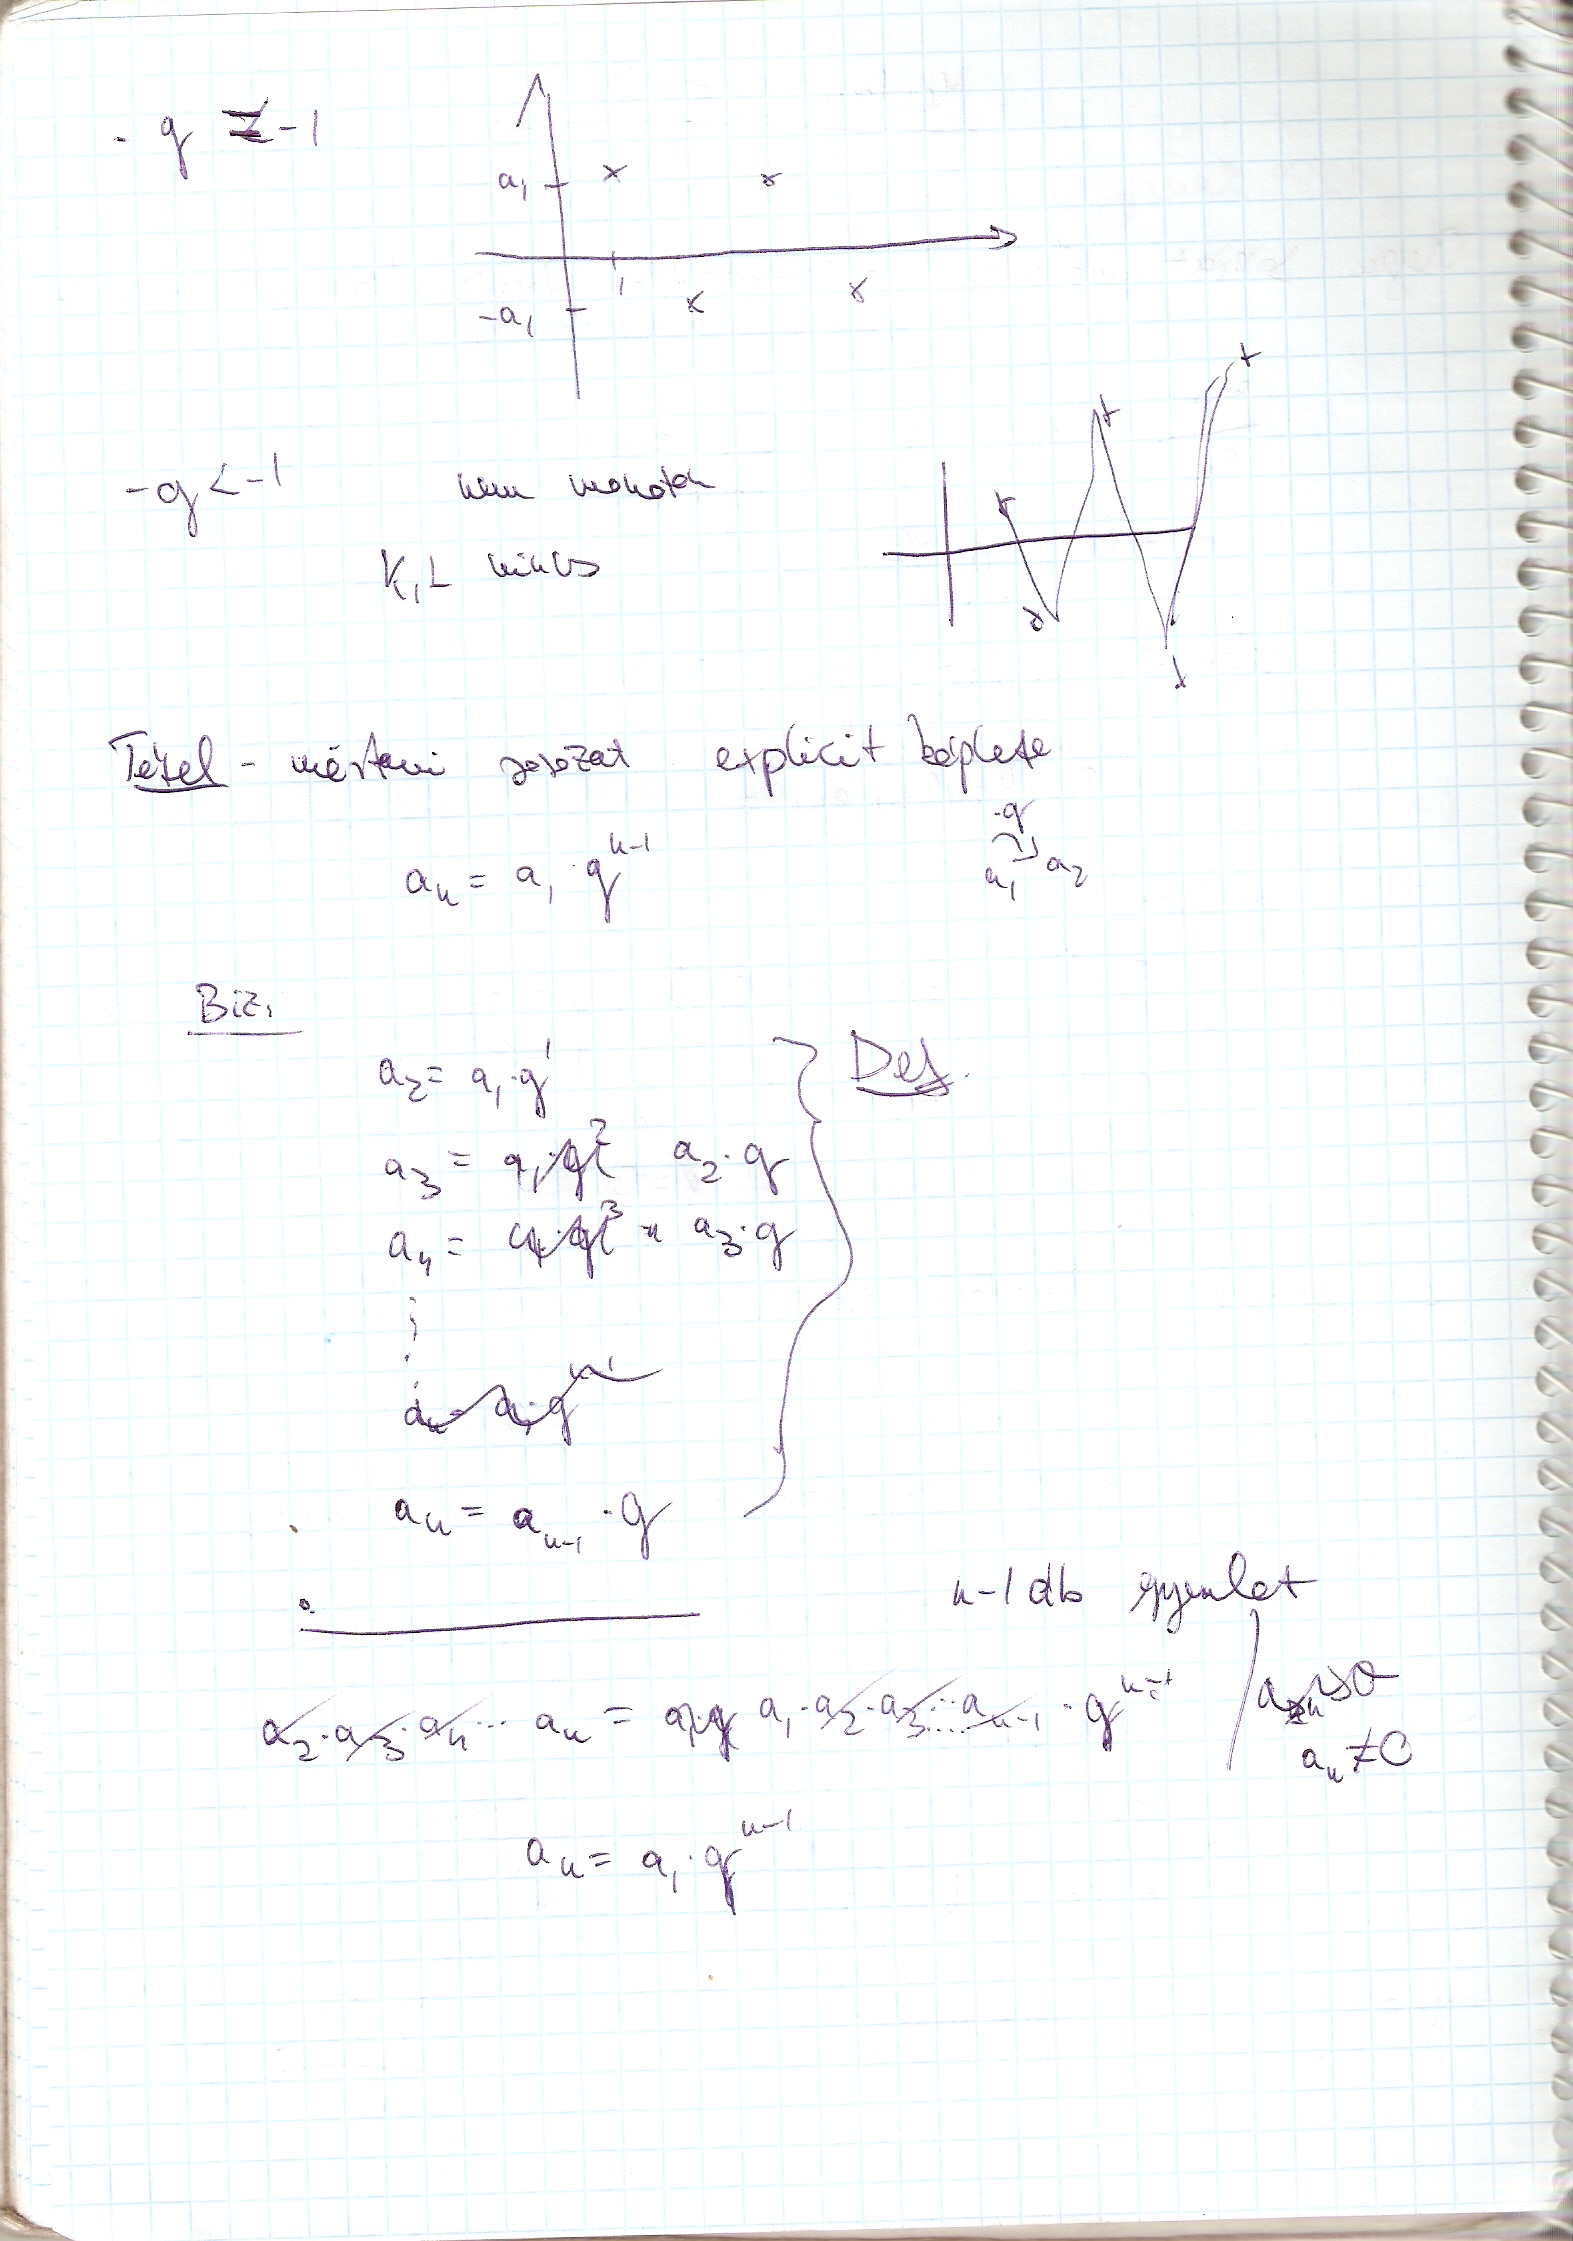 · q = -1
a₁
1
-a₁
- q < -1 nem monoton
K, L nincs
Tétel - mértani sorozat explicit képlete
aₙ = a₁ · qⁿ⁻¹
·q
a₁ a₂
Biz.
a₂ = a₁ · q¹
Def.
a₃ = a₁ · q² a₂ · q
a₄ = a₁ · q³ a₃ · q
⋮
aₙ = a₁ · qⁿ⁻¹
aₙ = aₙ₋₁ · q
n-1 db egyenlet
a₂ · a₃ · a₄ ... aₙ = a₁ · q a₁ · a₂ · a₃ ... aₙ₋₁ · qⁿ⁻¹
aₙ ≠ 0
aₙ = a₁ · qⁿ⁻¹